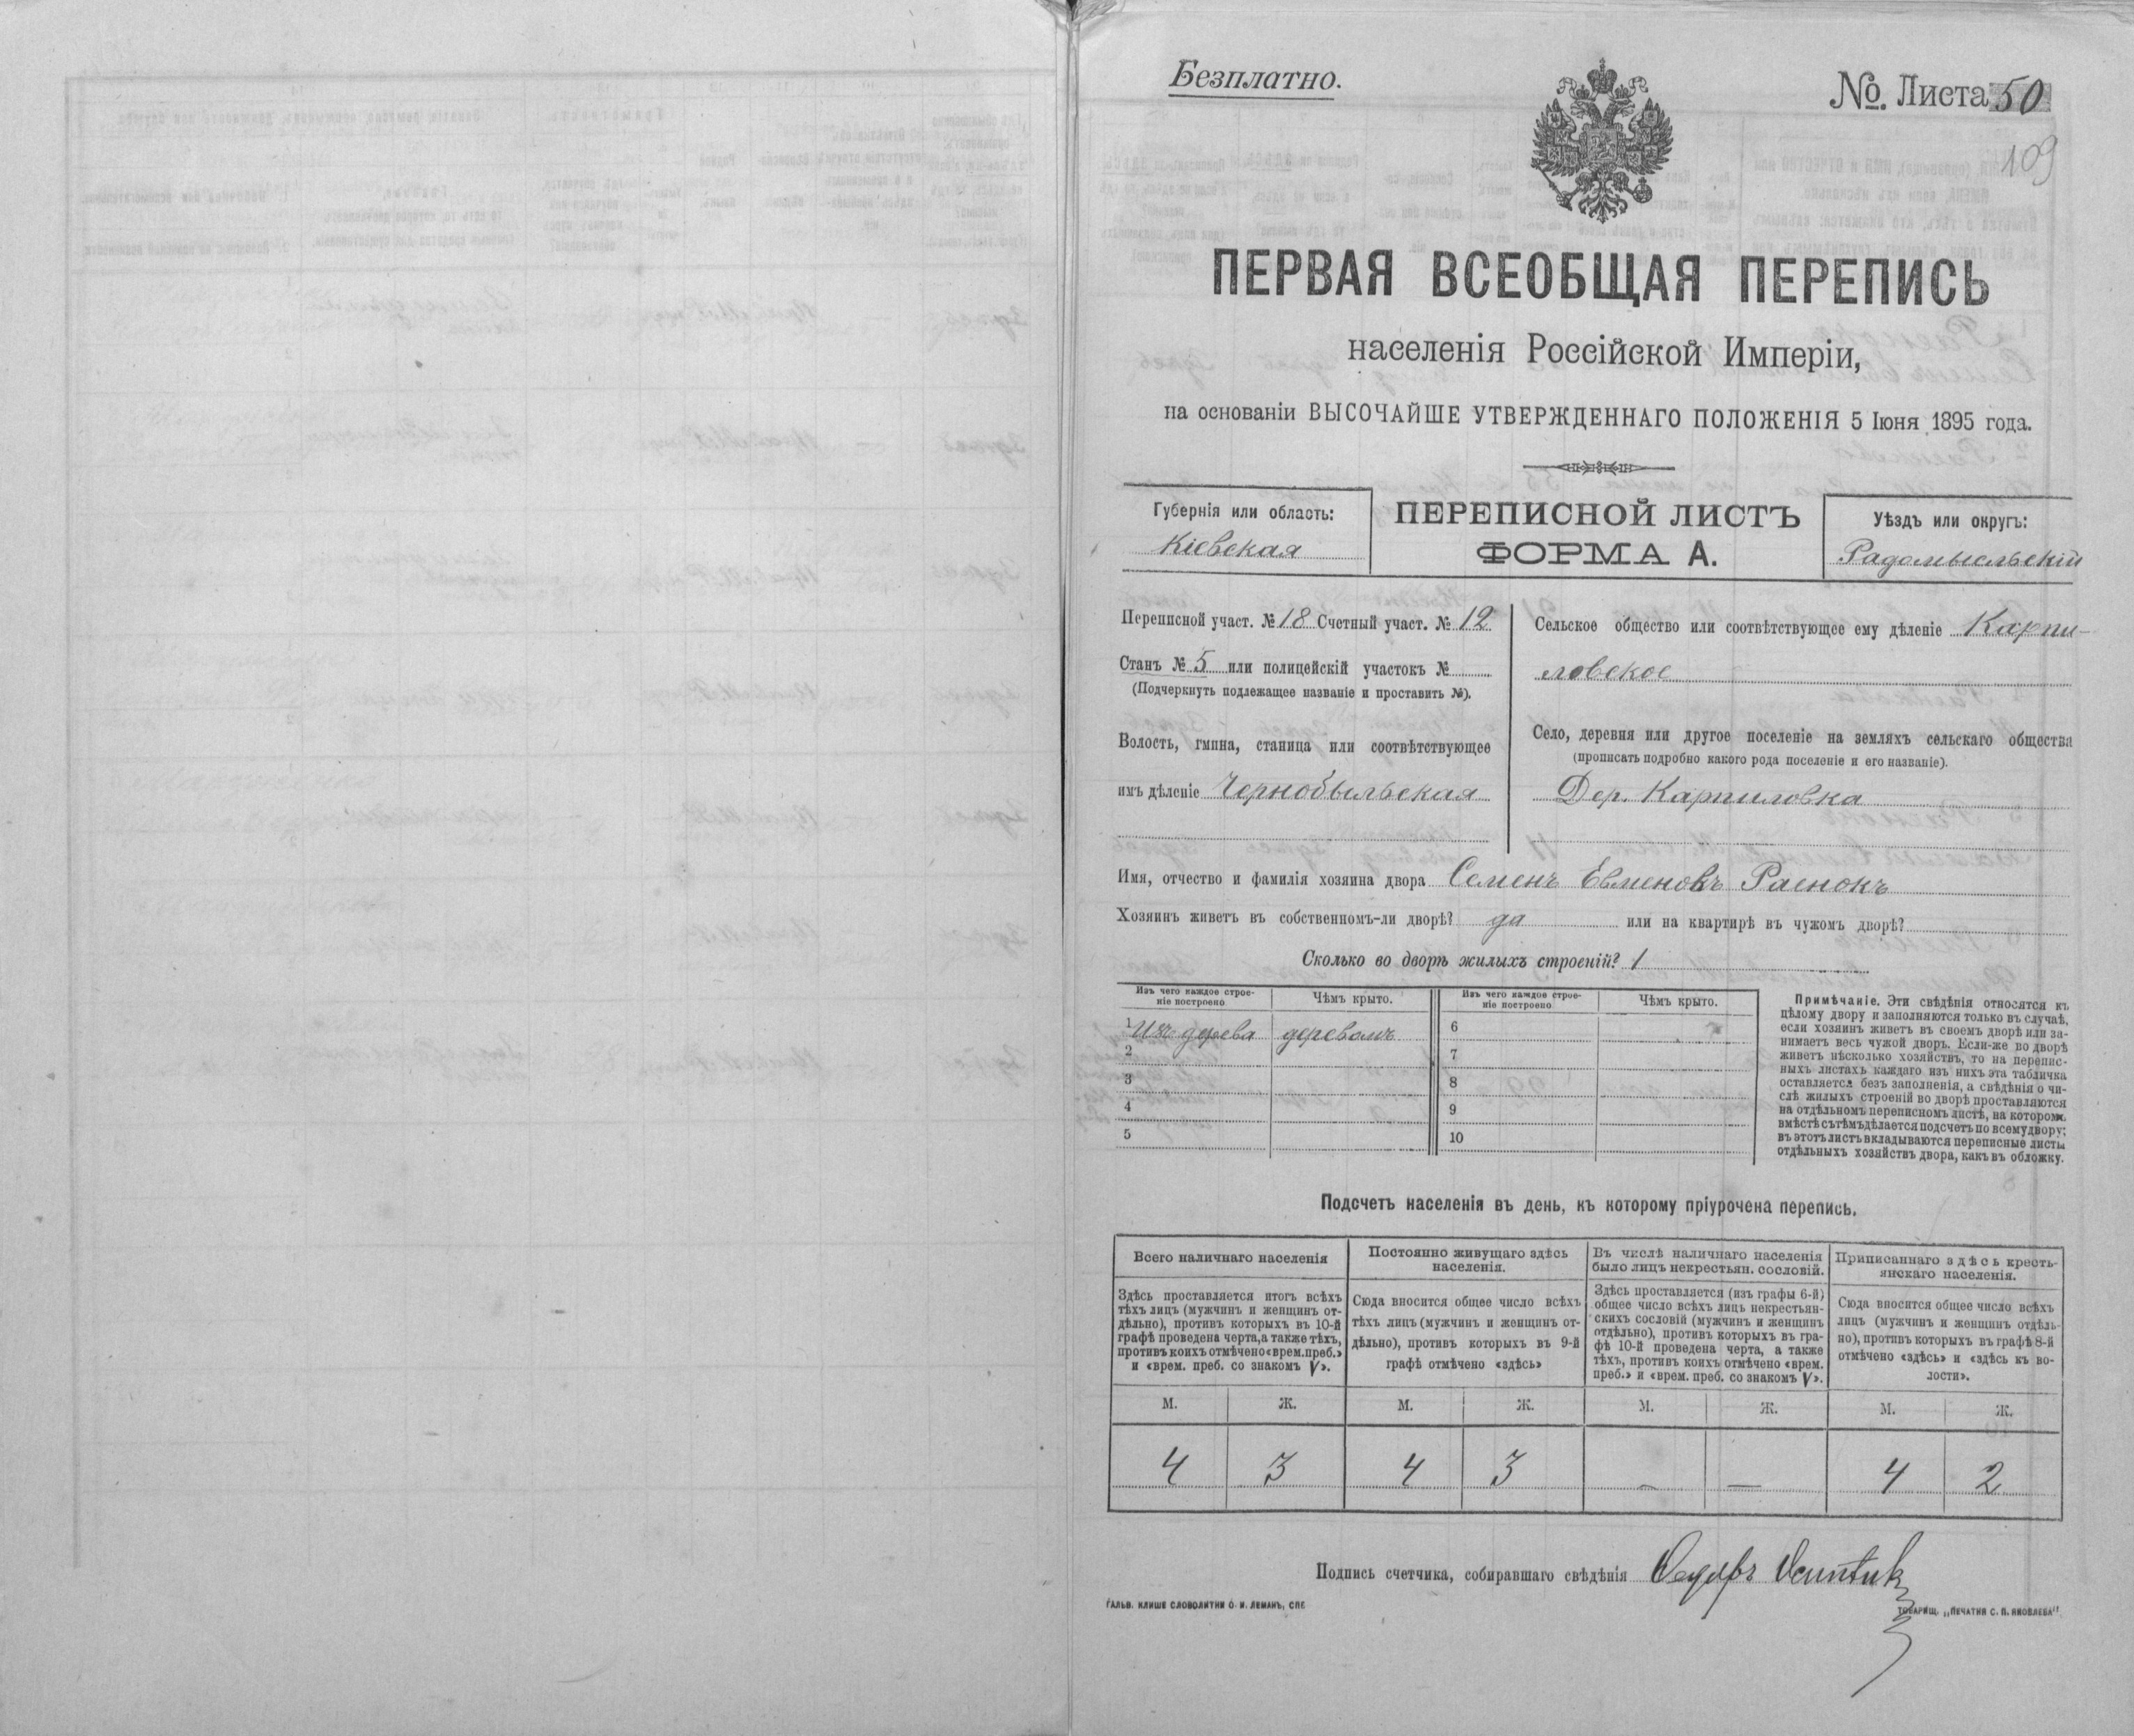 Безплатно.
№. Листа 50
109
ПЕРВАЯ ВСЕОБЩАЯ ПЕРЕПИСЬ
населенія Россійской Имперіи,
на основаніи ВЫСОЧАЙШЕ УТВЕРЖДЕННАГО ПОЛОЖЕНІЯ 5 Іюня 1895 года.
Губернія или область:
Кіевская
ПЕРЕПИСНОЙ ЛИСТЪ
ФОРМА А.
Уѣздъ или округъ:
Радомысльскій
Переписной участ. № 18 Счетный участ. № 12
Станъ № 5 или полицейскій участокъ №
(Подчеркнуть подлежащее названіе и проставить №).
Волость, гмина, станица или соотвѣтствующее
имъ дѣленіе Чернобыльская
Сельское общество или соотвѣтствующее ему дѣленіе Карпи-
ловское
Село, деревня или другое поселеніе на земляхъ сельскаго общества
(прописать подробно какого рода поселеніе и его названіе).
Дер. Карпиловка
Имя, отчество и фамилія хозяина двора Семенъ Евменовъ Раенокъ
Хозяинъ живетъ въ собственномъ-ли дворѣ? да или на квартирѣ въ чужомъ дворѣ?
Сколько во дворѣ жилыхъ строеній? 1
Изъ чего каждое строе-
ніе построено
Чѣмъ крыто.
Изъ чего каждое строе-
ніе построено
Чѣмъ крыто.
1 Изъ дерева деревомъ
2
3
4
5
6
7
8
9
10
Примѣчаніе. Эти свѣдѣнія относятся къ
цѣлому двору и заполняются только въ случаѣ,
если хозяинъ живетъ въ своемъ дворѣ или за-
нимаетъ весь чужой дворъ. Если-же во дворѣ
живетъ нѣсколько хозяйствъ, то на перепис-
ныхъ листахъ каждаго изъ нихъ эта табличка
оставляется безъ заполненія, а свѣдѣнія о чи-
слѣ жилыхъ строеній во дворѣ проставляются
на отдѣльномъ переписномъ листѣ, на которомъ
вмѣстѣ съ тѣмъ дѣлается подсчетъ по всему двору;
въ этотъ листъ вкладываются переписные листы
отдѣльныхъ хозяйствъ двора, какъ въ обложку.
Подсчетъ населенія въ день, къ которому пріурочена перепись.
Всего наличнаго населенія
Здѣсь проставляется итогъ всѣхъ
тѣхъ лицъ (мужчинъ и женщинъ от-
дѣльно), противъ которыхъ въ 10-й
графѣ проведена черта, а также тѣхъ,
противъ коихъ отмѣчено «врем. преб.»
и «врем. преб. со знакомъ V».
Постоянно живущаго здѣсь
населенія.
Сюда вносится общее число всѣхъ
тѣхъ лицъ (мужчинъ и женщинъ от-
дѣльно), противъ которыхъ въ 9-й
графѣ отмѣчено «здѣсь»
Въ числѣ наличнаго населенія
было лицъ некрестьян. сословій.
Здѣсь проставляется (изъ графы 6-й)
общее число всѣхъ лицъ некрестьян-
скихъ сословій (мужчинъ и женщинъ
отдѣльно), противъ которыхъ въ гра-
фѣ 10-й проведена черта, а также
тѣхъ, противъ коихъ отмѣчено «врем.
преб.» и «врем. преб. со знакомъ V».
Приписаннаго здѣсь кресть-
янскаго населенія.
Сюда вносится общее число всѣхъ
лицъ (мужчинъ и женщинъ отдѣль-
но), противъ которыхъ въ графѣ 8-й
отмѣчено «здѣсь» и «здѣсь къ во-
лости».
М. Ж. М. Ж. М. Ж. М. Ж.
4 3 4 3 — — 4 2
Подпись счетчика, собиравшаго свѣдѣнія
ГАЛЬВ. КЛИШЕ СЛОВОЛИТНИ О. И. ЛЕМАНЪ, СПБ
ТОВАРИЩ. „ПЕЧАТНЯ С. П. ЯКОВЛЕВА"